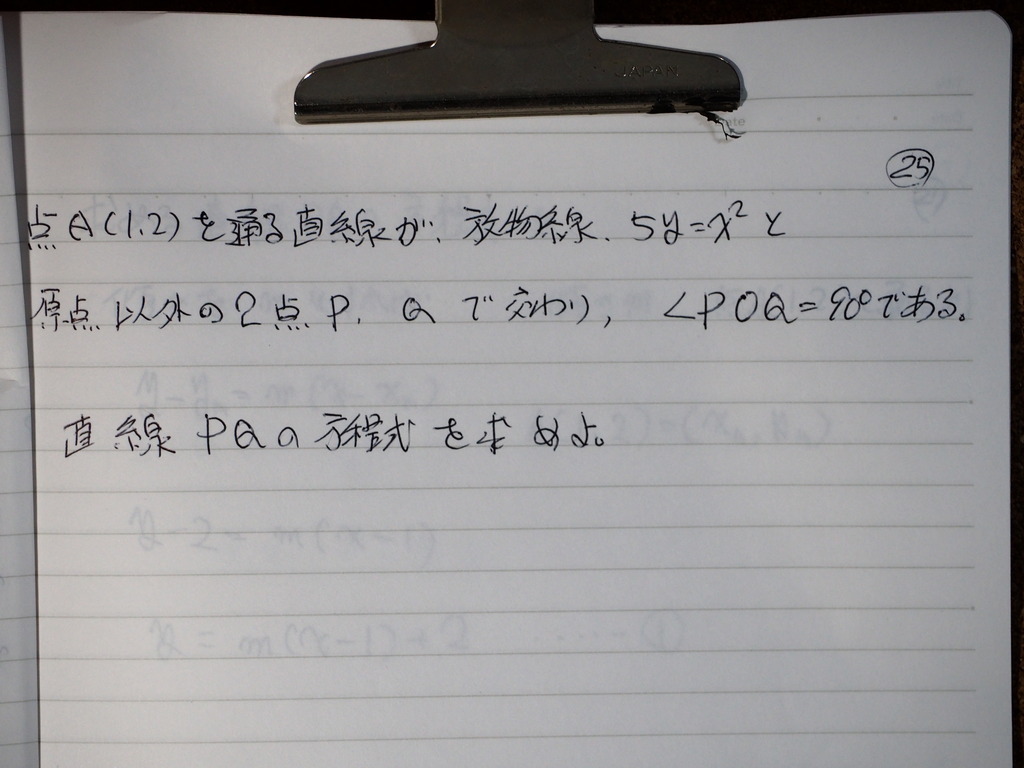 JAPAN
25
点A(1.2)を通る直線が、放物線、5y=x²と
原点以外の2点P、Qで交わり, ∠POQ=90°である。
直線PQの方程式を求めよ。
y-2=m(x-1)
y=m(x-1)+2 ……①